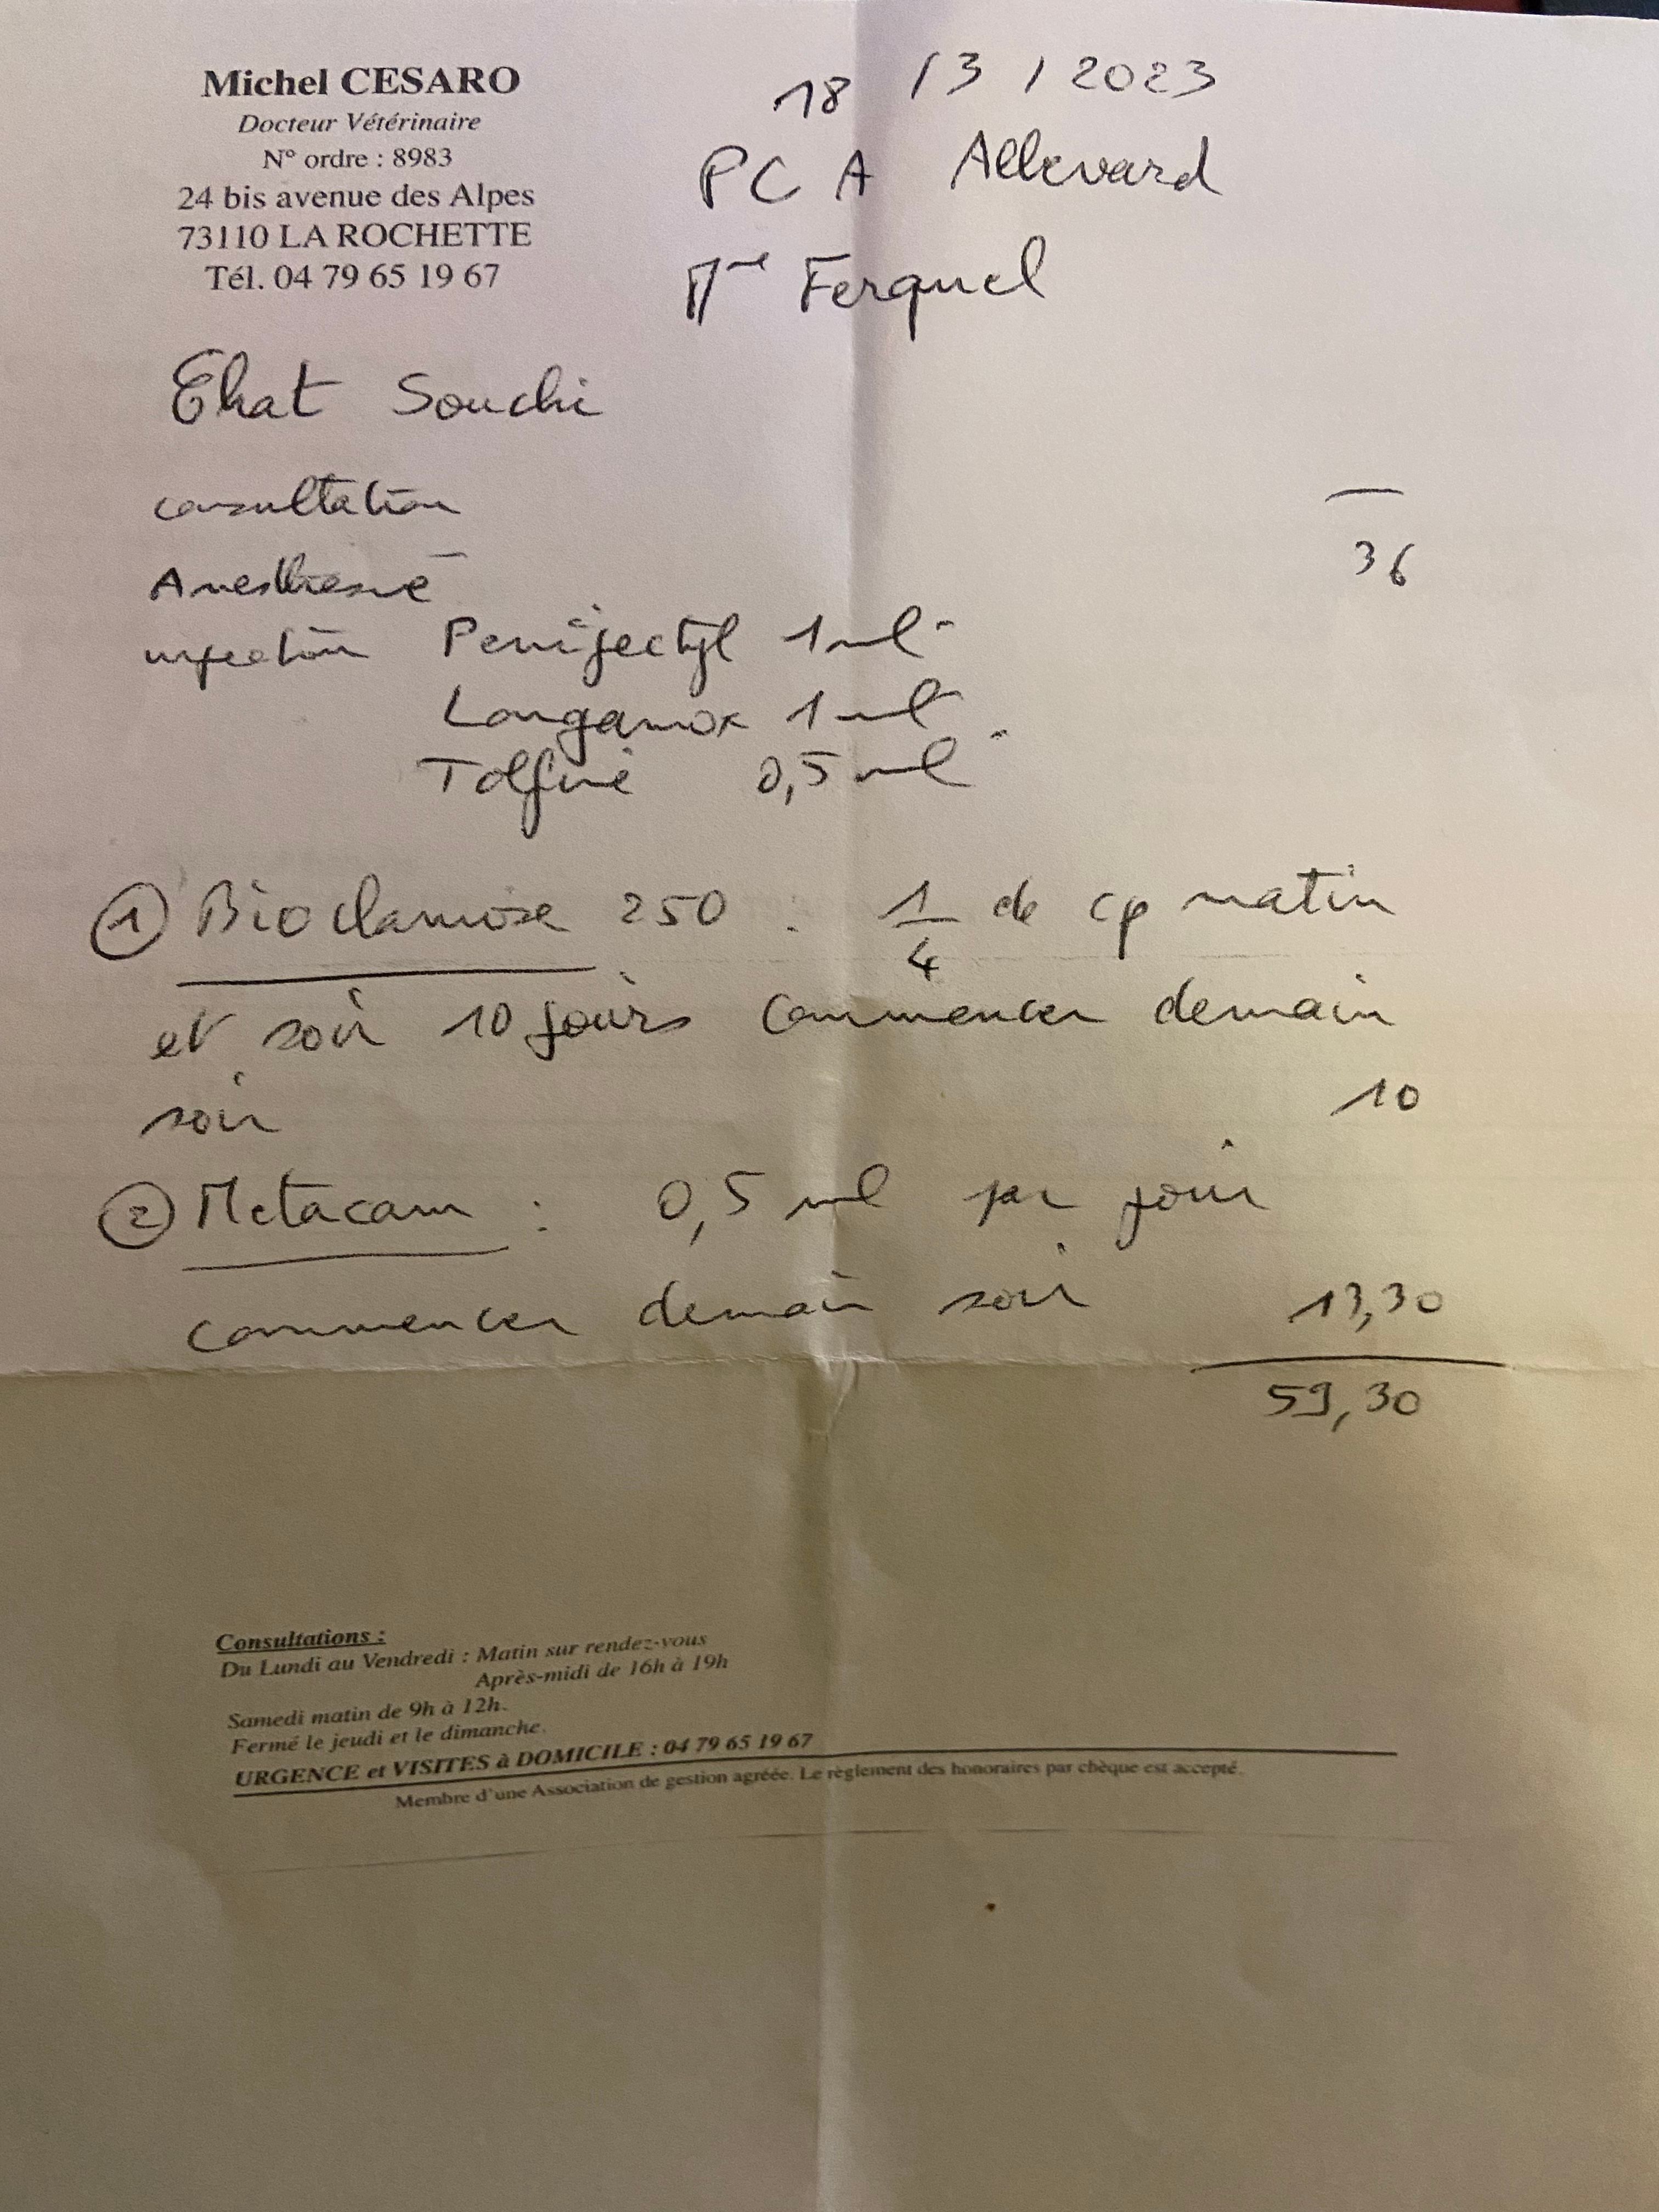 Michel CESARO
Docteur Vétérinaire
N° ordre : 8983
24 bis avenue des Alpes
73110 LA ROCHETTE
Tél. 04 79 65 19 67
18 / 3 / 2023
PCA Allevard
Mme Ferquel
Chat Souchi
consultation —
Anesthesie 36
injection Penijectyl 1 ml
Longamox 1 ml
Tolfine 0,5 ml
① Bioclamox 250 : 1/4 de cp matin
et soir 10 jours commencer demain
soir 10
② Metacam : 0,5 ml par jour
commencer demain soir 13,30
59,30
Consultations :
Du Lundi au Vendredi : Matin sur rendez-vous
Après-midi de 16h à 19h
Samedi matin de 9h à 12h.
Fermé le jeudi et le dimanche.
URGENCE et VISITES à DOMICILE : 04 79 65 19 67
Membre d'une Association de gestion agréée. Le règlement des honoraires par chèque est accepté.